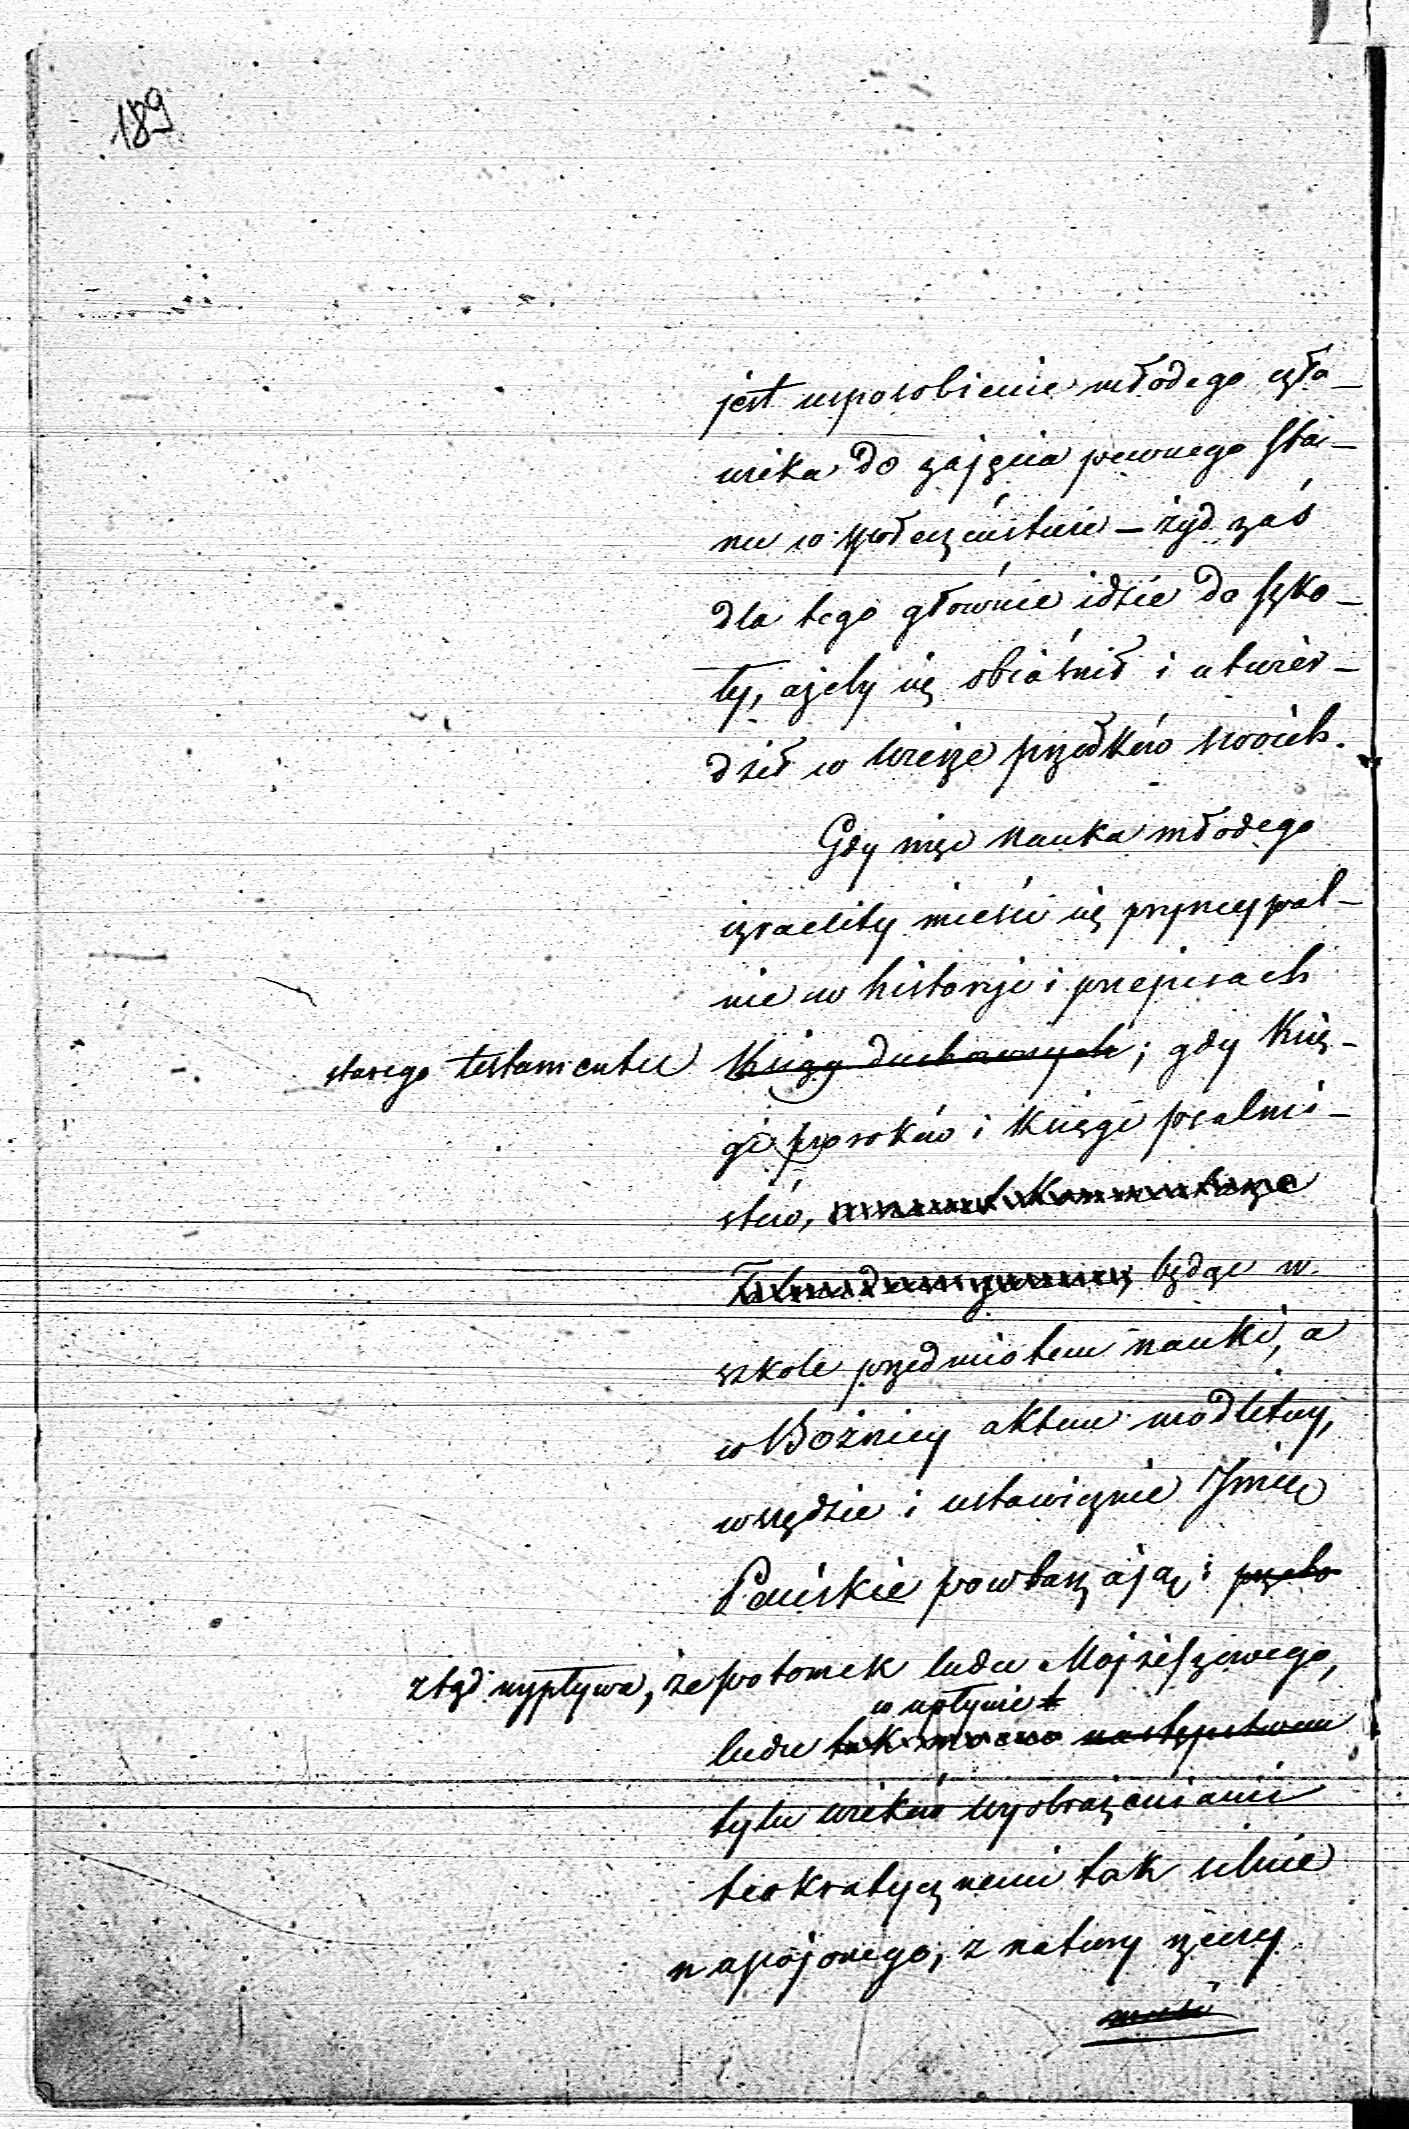 189
jest usposobienie młodego czło-
wieka do zajęcia pewnego sta-
nu w społeczeństwie – żyd zaś
dla tego głównie idzie do szko-
ły, ażeby się obiaśnił i utwier-
dził w wierze przodków swoich.
Gdy więc nauka młodego
izraelity mieści się pryncypal-
nie w historyi i przepisach
starego testamentu Księgy duchownych; gdy Księ-
gi proroków i Księgi psalmi-
stów,
będąc w
szkole przedmiotem nauki, a
w Bożnicy aktem modlitwy,
wszędzie i ustawicznie Imię
Pańskie powtarzają i przeto
ztąd wypływa, że potomek ludu Mojżeszowego,
w upłynie
ludu tak mocno następstwem
tylu wieków wyobrażeniami
teokratycznemi tak silnie
napojonego, z natury rzeczy
musi